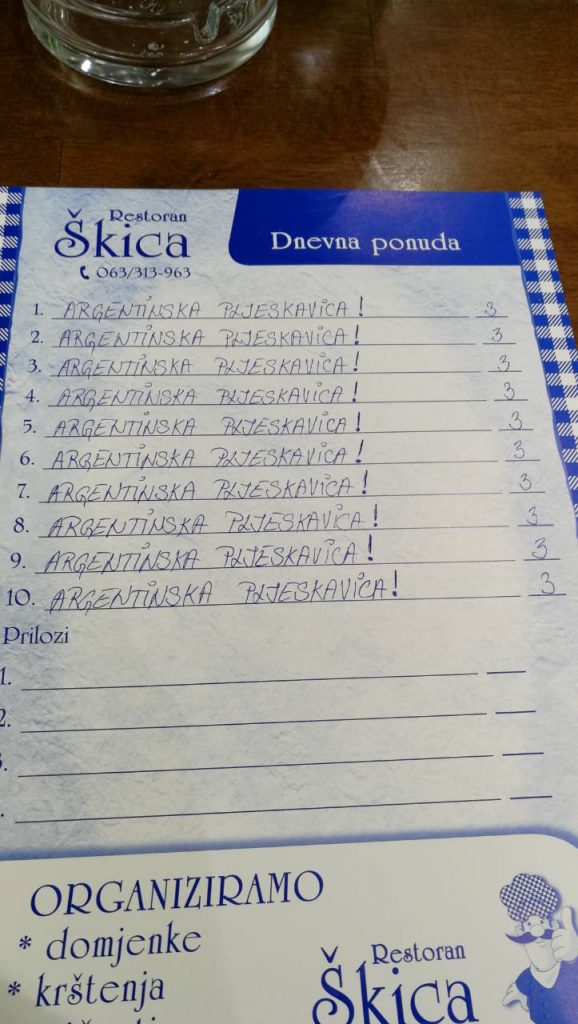 Restoran
Škica
063/313-963
Dnevna ponuda
1. ARGENTINSKA PLJESKAVICA! 3
2. ARGENTINSKA PLJESKAVICA! 3
3. ARGENTINSKA PLJESKAVICA! 3
4. ARGENTINSKA PLJESKAVICA! 3
5. ARGENTINSKA PLJESKAVICA! 3
6. ARGENTINSKA PLJESKAVICA! 3
7. ARGENTINSKA PLJESKAVICA! 3
8. ARGENTINSKA PLJESKAVICA! 3
9. ARGENTINSKA PLJESKAVICA! 3
10. ARGENTINSKA PLJESKAVICA! 3
Prilozi
1.
2.
ORGANIZIRAMO
* domjenke
* krštenja
Restoran
Škica